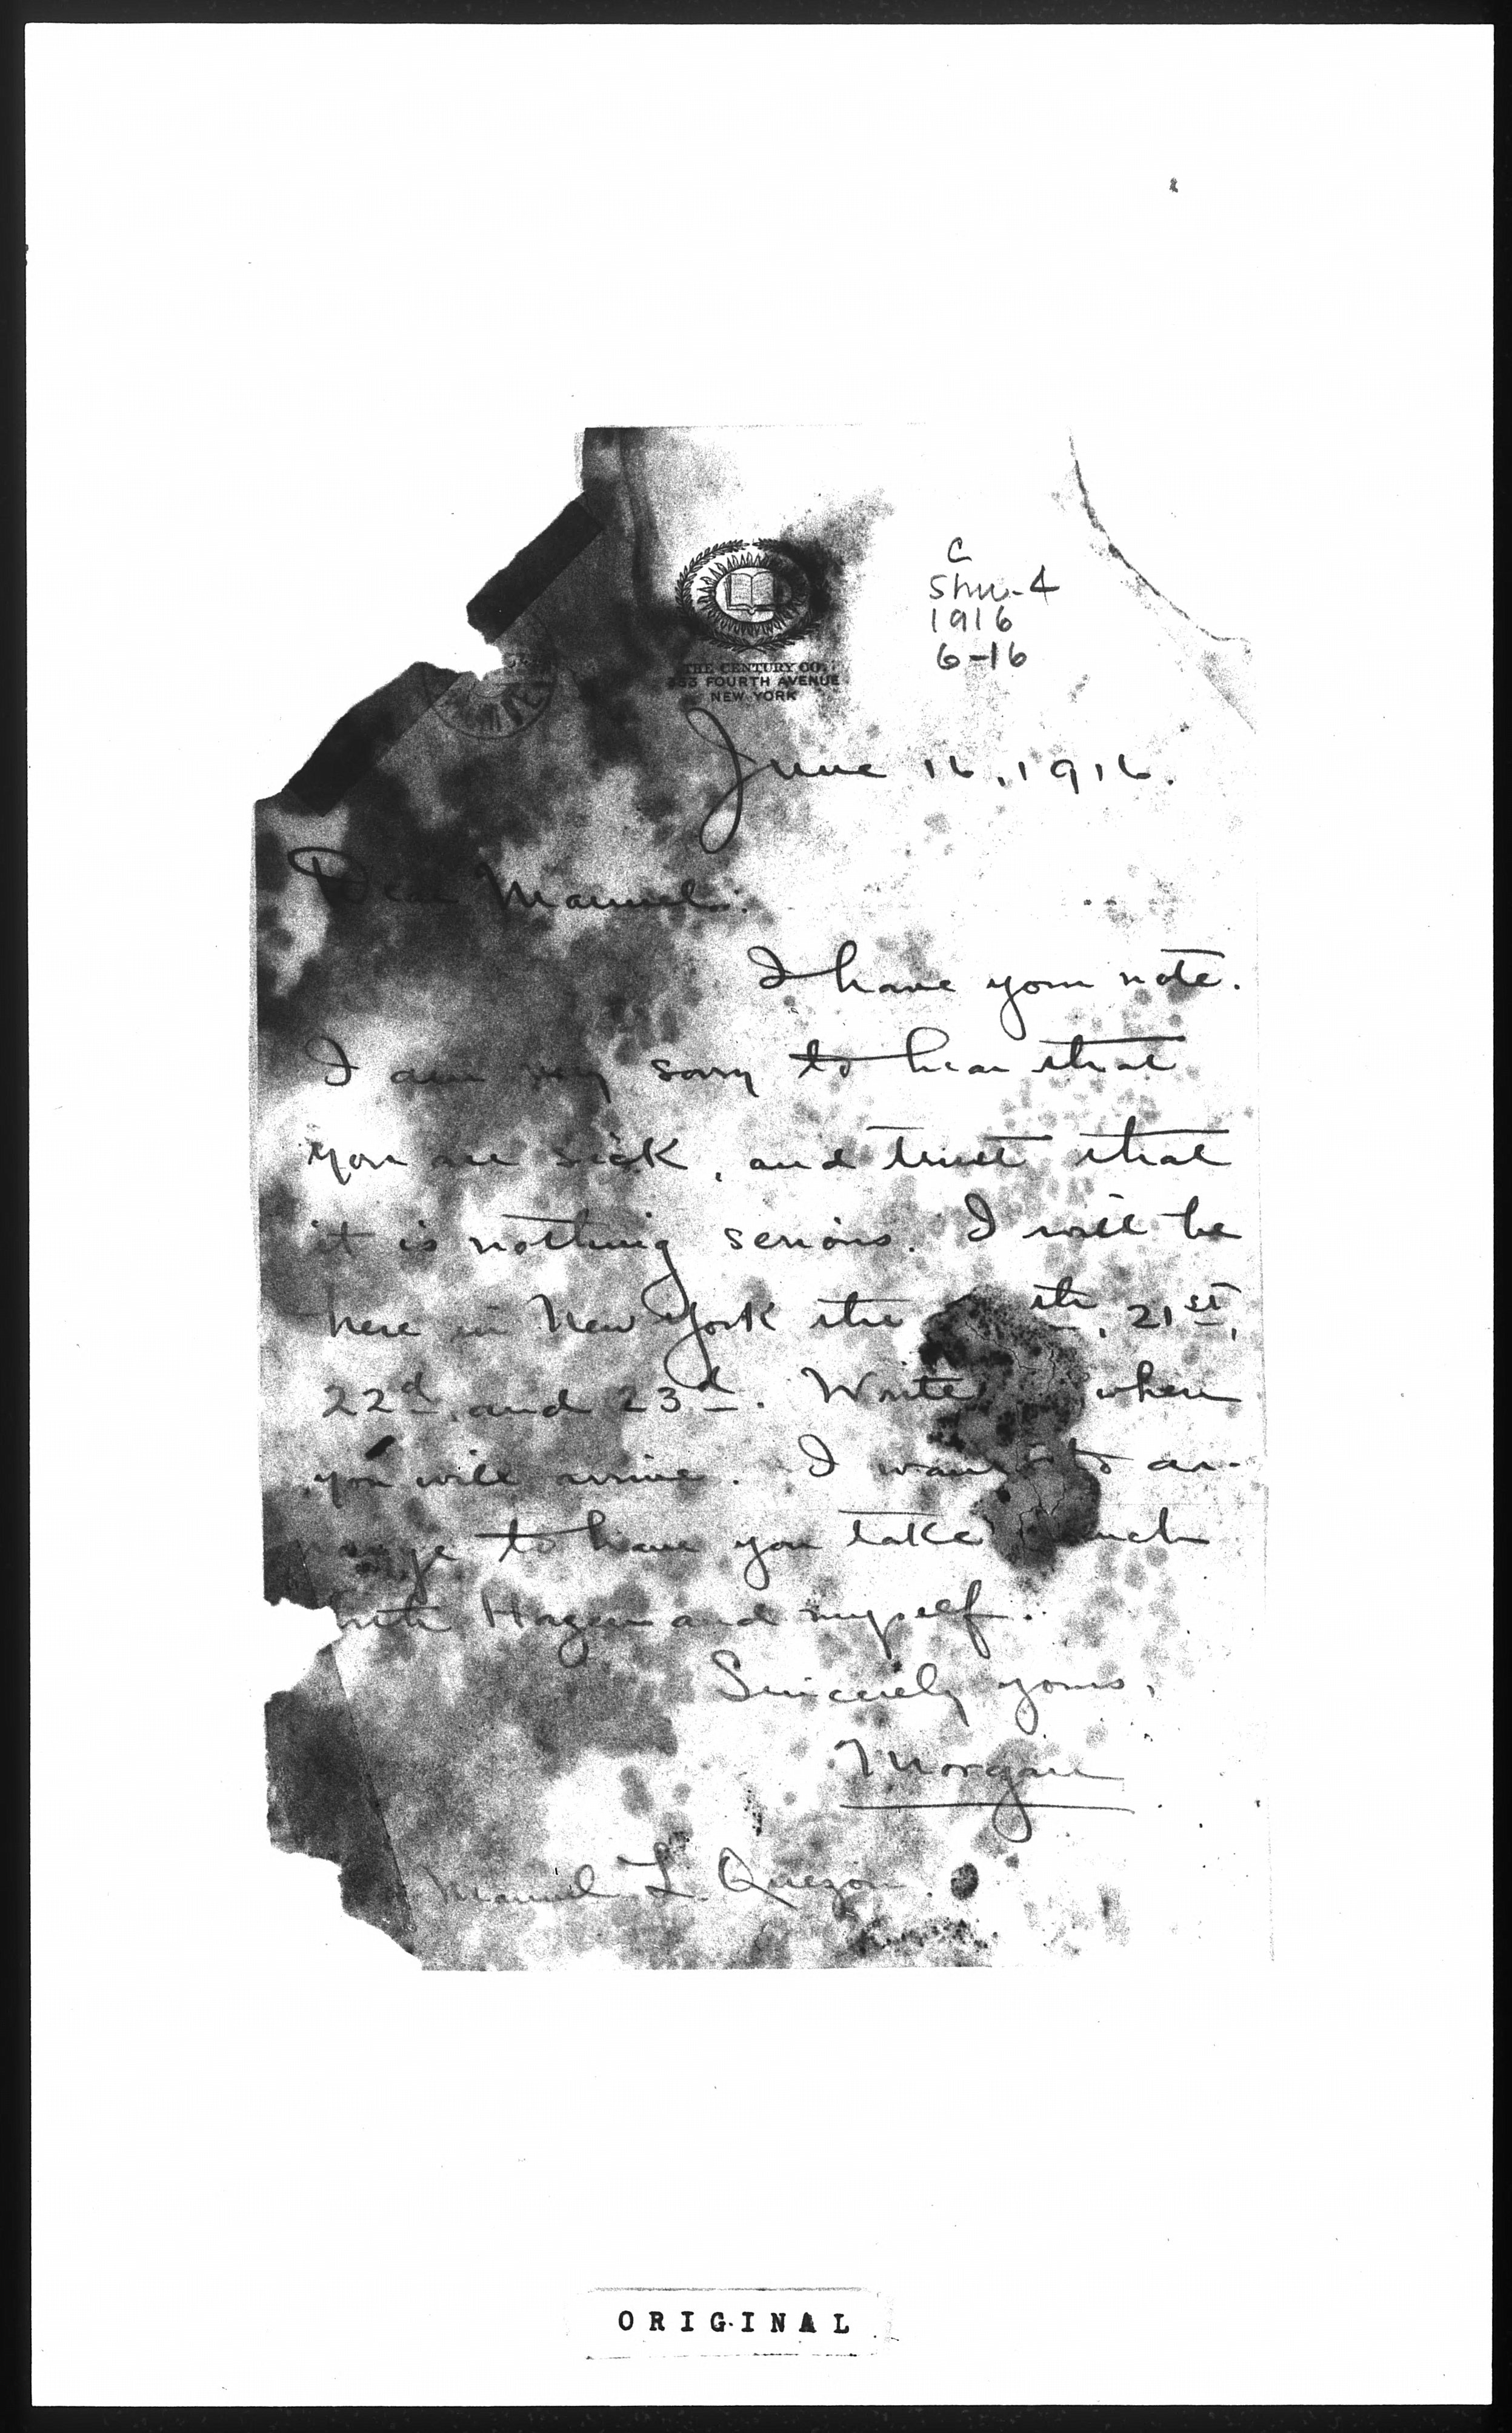 C
Shu-4
1916
6-16
THE CENTURY CO.
353 FOURTH AVENUE
NEW YORK
June 16, 1916.
Dear Manuel:
I have your note.
I am very sorry to hear that
you are sick, and trust that
it is nothing serious. I will be
here in New York the th, 21st,
22d, and 23d. Write when
you will arrive. I want to ar-
range to have you take lunch
with Hagen and myself.
Sincerely yours,
Morgan
Manuel L. Quezon.
ORIGINAL